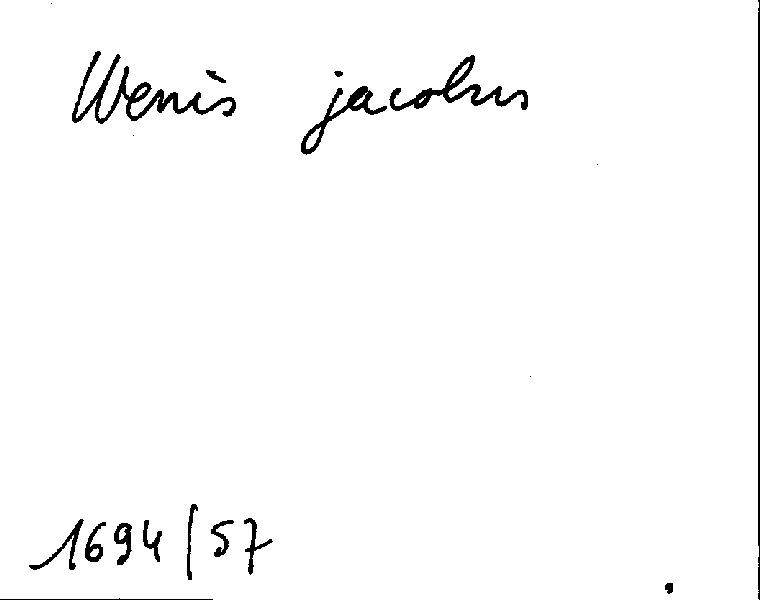 Wenis jacobus
1694/57